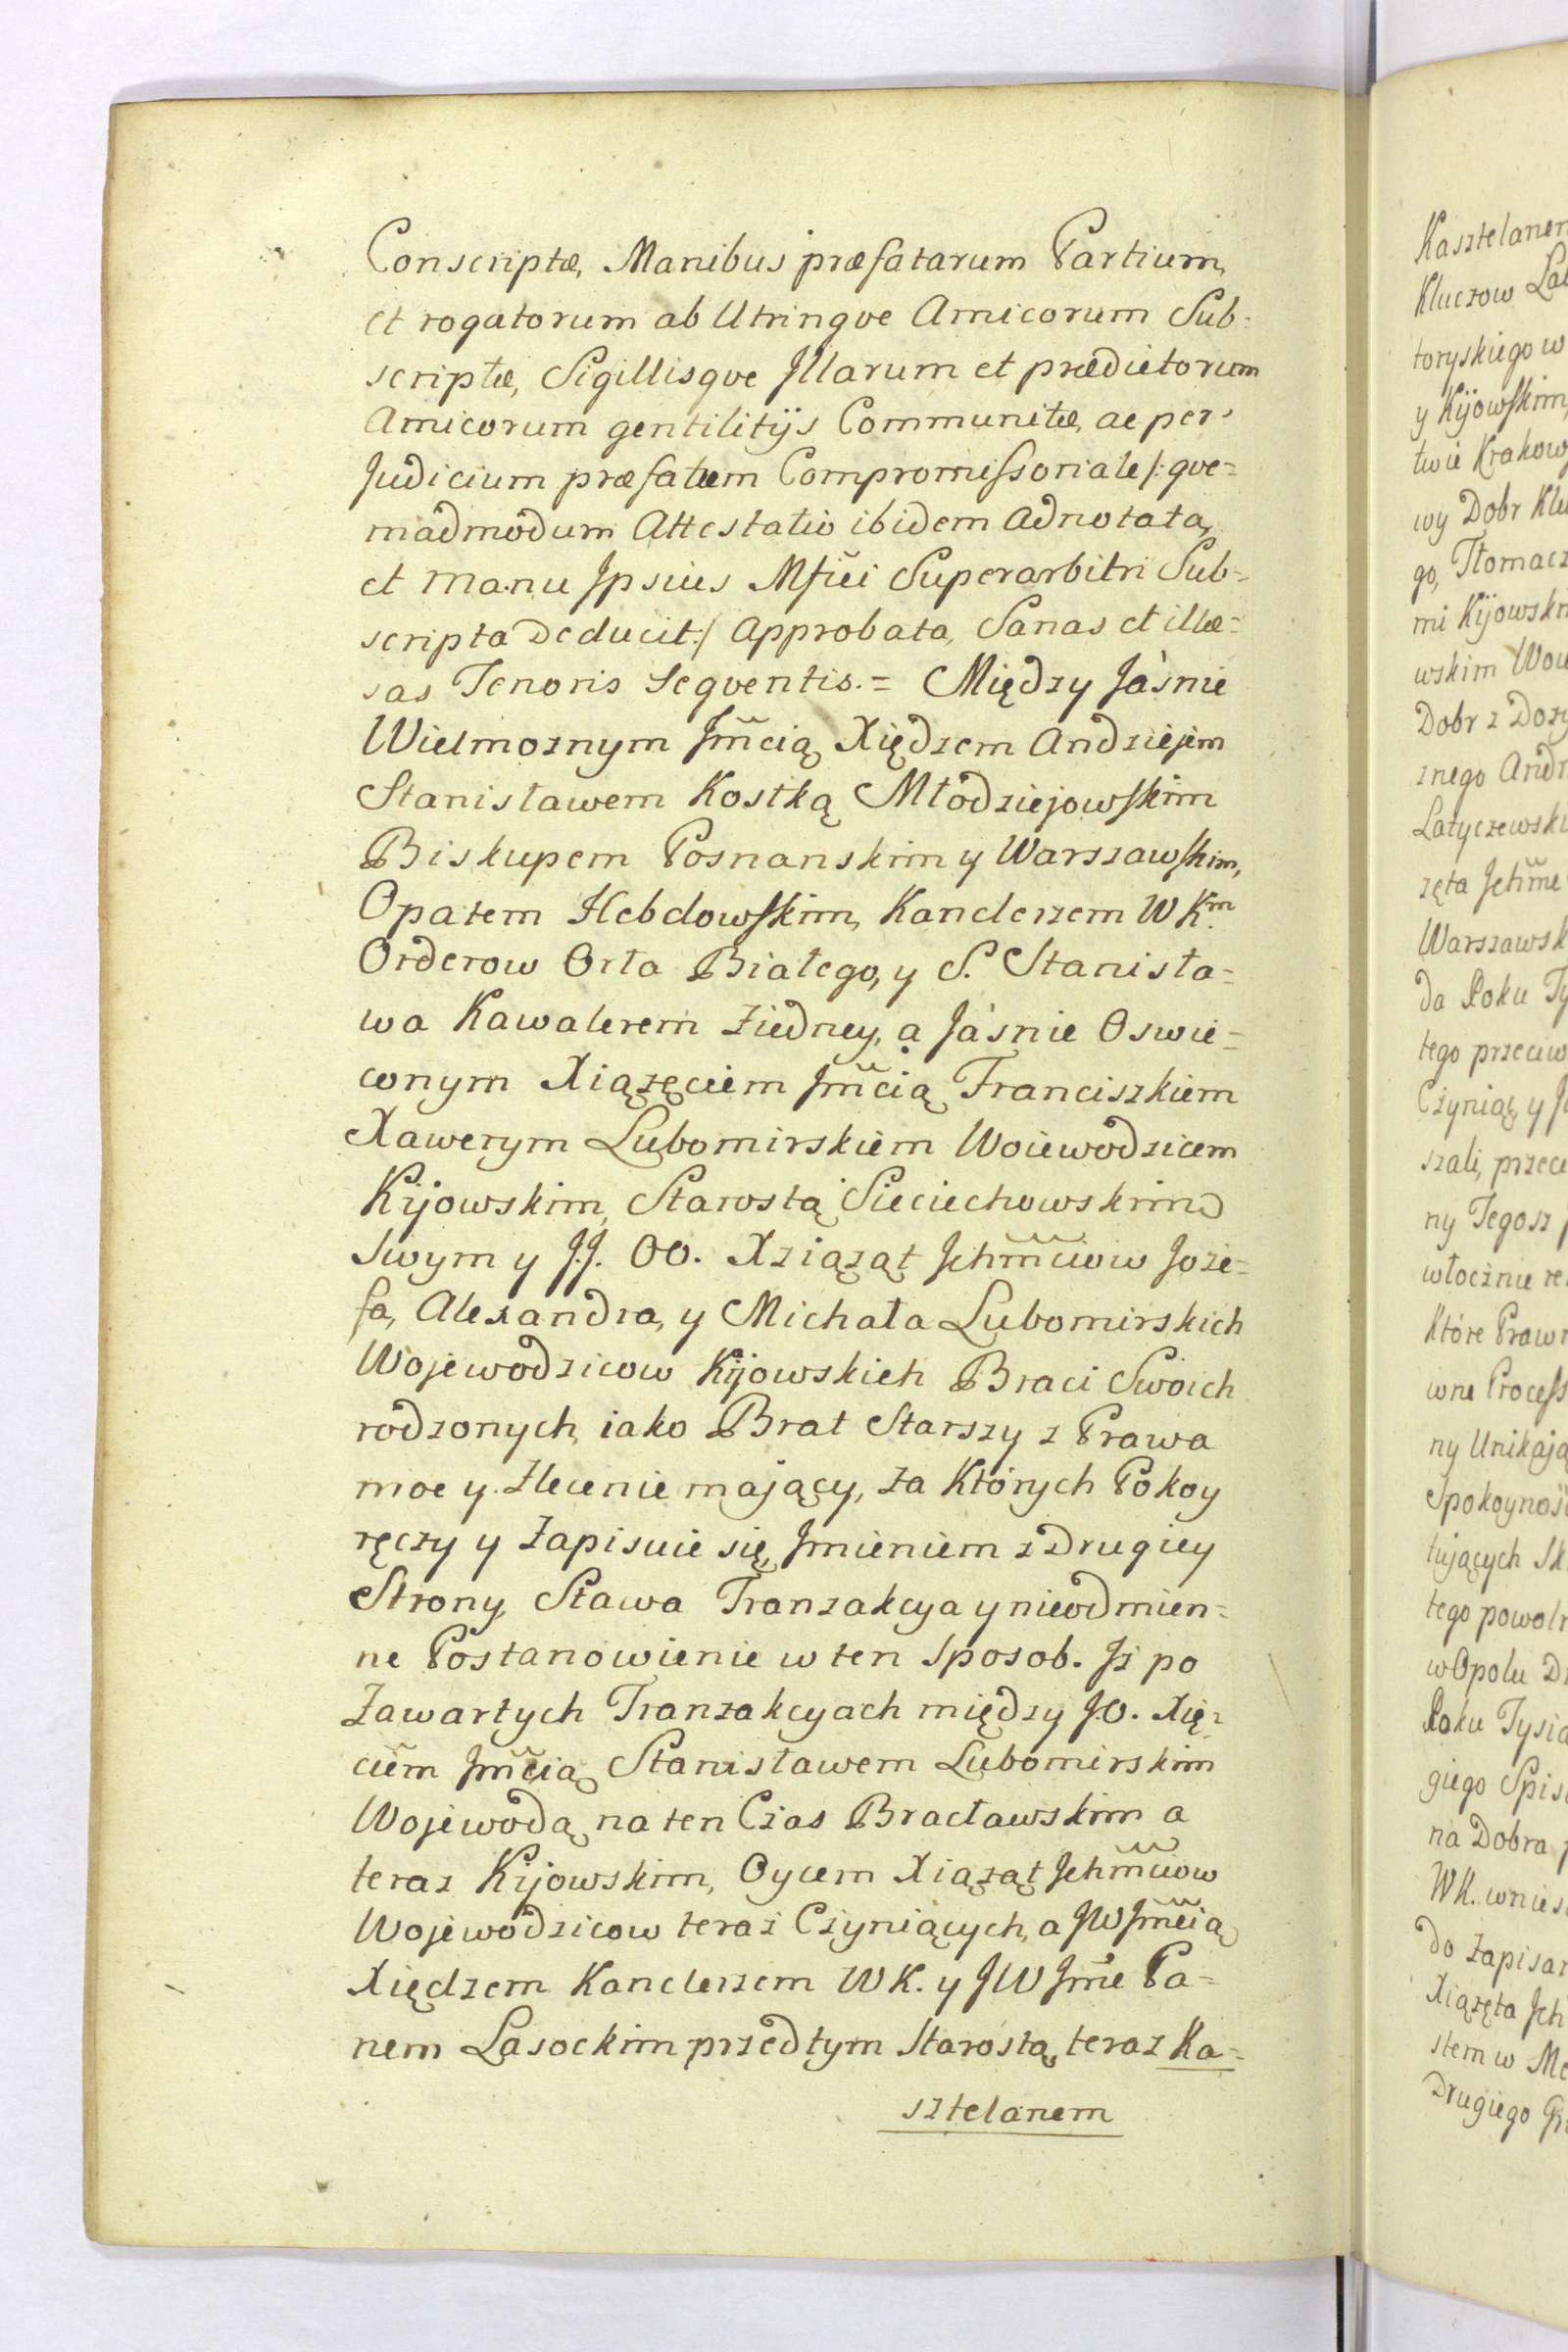 Conscriptæ, Manibus præfatarum Partium,
et rogatorum ab Utrinqve Amicorum Sub=
scriptæ, Sigillisqve Illarum et prædictorum
Amicorum gentilitijs Communitæ, ac per
Judicium præfatum Compromissoriale /: qve=
madmodum Attestatio ibidem Adnotata,
et manu Ipsius Mfici Superarbitri Sub=
scripta Deducit :/ Approbata, Sanas et illæ=
sas Tenoris Seqventis. = Między Jaśnie
Wielmoznym Jmcią Xiędzem Andziejem
Stanisławem Kostką Młodziejowskim
Biskupem Posnanskim y Warszawskim,
Opatem Hebdowskim, Kanclerzem W Km
Orderow Orła Białego, y S. Stanisła=
wa Kawalerem z iedney, a Jaśnie Oswie=
conym Xiązęciem Jmcią Franciszkiem
Xawerym Lubomirskiem Woiewodzicem
Kijowskim, Starostą Sieciechowskim
Swym y J.J. OO. Xziąząt Jchmciow Joze=
fa, Alexandra, y Michała Lubomirskich
Wojewodzicow Kijowskich Braci Swoich
rodzonych, iako Brat Starszy z Prawa
moc y Zlecenie mający, za Których Pokoy
ręczy y Zapisuie się, Jmieniem z Drugiey
Strony, Stawa Tranzakcya y nieodmien=
ne Postanowienie w ten Sposob. Jz po
Zawartych Tranzakcyach między J.O. Xię=
ciem Jmcią Stanisławem Lubomirskim
Wojewodą na ten Czas Bracławskim a
teraz Kijowskim, Oycem Xiąząt Jchmciow
Wojewodzicow teraz Czyniących, a JW Jmcią
Xiędzem Kanclerzem WK. y JW Jmc Pa=
nem Lasockim przedtym Starostą, teraz Ka=
sztelanem
Kasztelanem
Kluczow
toryskiego w
y Kijowskim,
twie
wy Dobr
go,
mi
wskim
Dobr z
znego
zęta Jchmc
da Roku
tego przeciw
Czyniąc y
szali,
ny Tegosz
włocznie
Które
wne
ny
tego
w Opolu
Roku
giego
na Dobra
WK.
do
Xiązęta
stem w
Drugiego